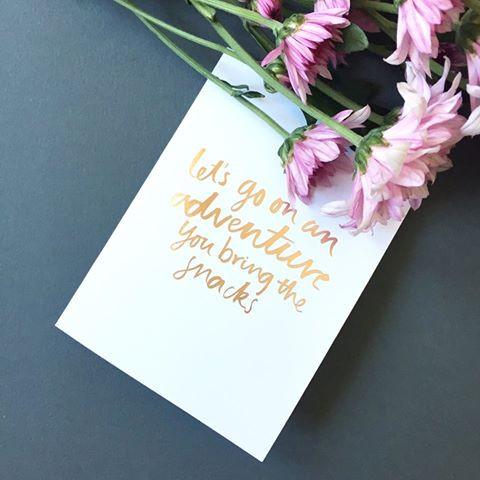 let's go on an
adventure
you bring the
snacks